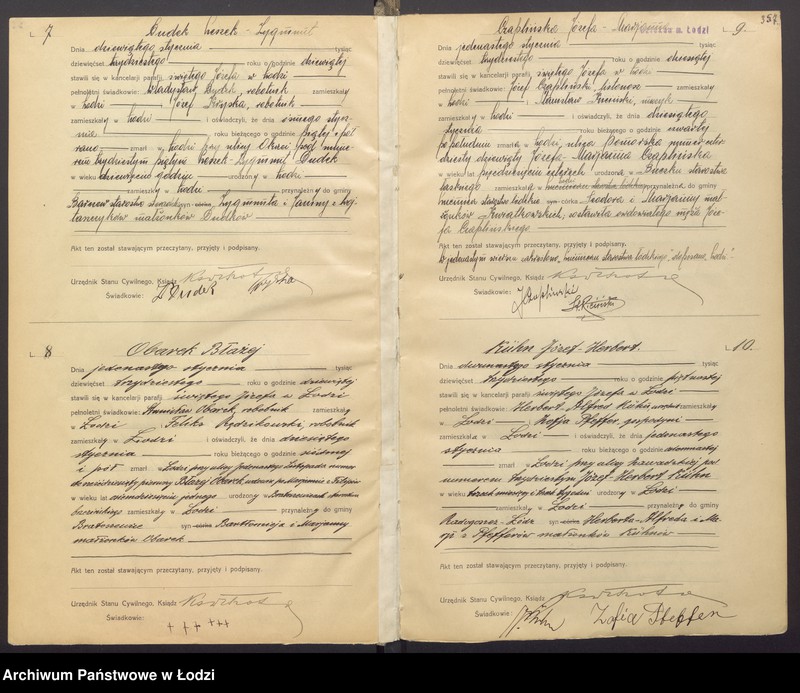 7
Dudek Leszek-Zygmunt
Dnia dziewiątego stycznia tysiąc
dziewięćset trzydziestego roku o godzinie dziewiątej
stawili się w kancelarji parafji świętego Józefa w Łodzi
pełnoletni świadkowie: Władysław Dudek, robotnik zamieszkały
w Łodzi Józef robotnik
zamieszkały w Łodzi i oświadczyli, że dnia ósmego stycz-
nia roku bieżącego o godzinie piątej i pół
rano zmarł w Łodzi przy ulicy pod nume-
rem trzydziestym piątym Leszek-Zygmunt Dudek
w wieku dziewięciu godzin urodzony w Łodzi
zamieszkały w Łodzi przynależny do gminy
syn córka Zygmunta i Janiny z
małżonków Dudków
Akt ten został stawającym przeczytany, przyjęty i podpisany.
Urzędnik Stanu Cywilnego, Ksiądz
Świadkowie: Dudek
8
Obarek Błażej
Dnia jedenastego stycznia tysiąc
dziewięćset trzydziestego roku o godzinie dziewiątej
stawili się w kancelarji parafji świętego Józefa w Łodzi
pełnoletni świadkowie: Stanisław Obarek, robotnik zamieszkały
w Łodzi Feliks robotnik
zamieszkały w Łodzi i oświadczyli, że dnia dziesiątego
stycznia roku bieżącego o godzinie siódmej
i pół zmarł w Łodzi przy ulicy Jedenastego Listopada numer
Błażej Obarek
w wieku lat siedmdziesiąt jeden urodzony w
zamieszkały w Łodzi przynależny do gminy
syn córka Bartłomieja i Marjanny
małżonków Obarek
Akt ten został stawającym przeczytany, przyjęty i podpisany.
Urzędnik Stanu Cywilnego, Ksiądz
Świadkowie: +++ +++
359
m. Łodzi
9.
Czaplińska Józefa-Marjanna
Dnia jedenastego stycznia tysiąc
dziewięćset trzydziestego roku o godzinie dziesiątej
stawili się w kancelarji parafji świętego Józefa w Łodzi
pełnoletni świadkowie: Józef Czapliński, zamieszkały
w Łodzi i Stanisław muzyk
zamieszkały w Łodzi i oświadczyli, że dnia dziewiątego
stycznia roku bieżącego o godzinie czwartej
po południu zmarła w Łodzi, ulica Pomorska numer czter-
dziesty dziewiąty Józefa-Marjanna Czaplińska
w wieku lat pięćdziesiąt czterech urodzona w starostwa
łaskiego zamieszkały w przynależna do gminy
syn córka Teodora i Marjanny mał-
żonków Kwiatkowskich, zostawiła owdowiałego męża Józe-
fa Czaplińskiego
Akt ten został stawającym przeczytany, przyjęty i podpisany.
W jedenastym wierszu
Urzędnik Stanu Cywilnego, Ksiądz
Świadkowie: J Czapliński
10.
Kühn Józef-Herbert.
Dnia dwunastego stycznia tysiąc
dziewięćset trzydziestego roku o godzinie piętnastej
stawili się w kancelarji parafji świętego Józefa w Łodzi
pełnoletni świadkowie: Herbert Alfred Kühn zamieszkały
w Łodzi Zofja Pfeffer, gospodyni
zamieszkała w Łodzi i oświadczyli, że dnia jedenastego
stycznia roku bieżącego o godzinie
zmarł w Łodzi przy ulicy Zawadzkiej pod
numerem trzydziestym Józef-Herbert Kühn
w wieku urodzony w Łodzi
zamieszkały w Łodzi przynależny do gminy
Radogoszcz-Łódź syn córka Herberta-Alfreda i Ma-
rji z Pfefferów małżonków Kühnów
Akt ten został stawającym przeczytany, przyjęty i podpisany.
Urzędnik Stanu Cywilnego, Ksiądz
Świadkowie: Kühn Zofia Pfeffer
Archiwum Państwowe w Łodzi